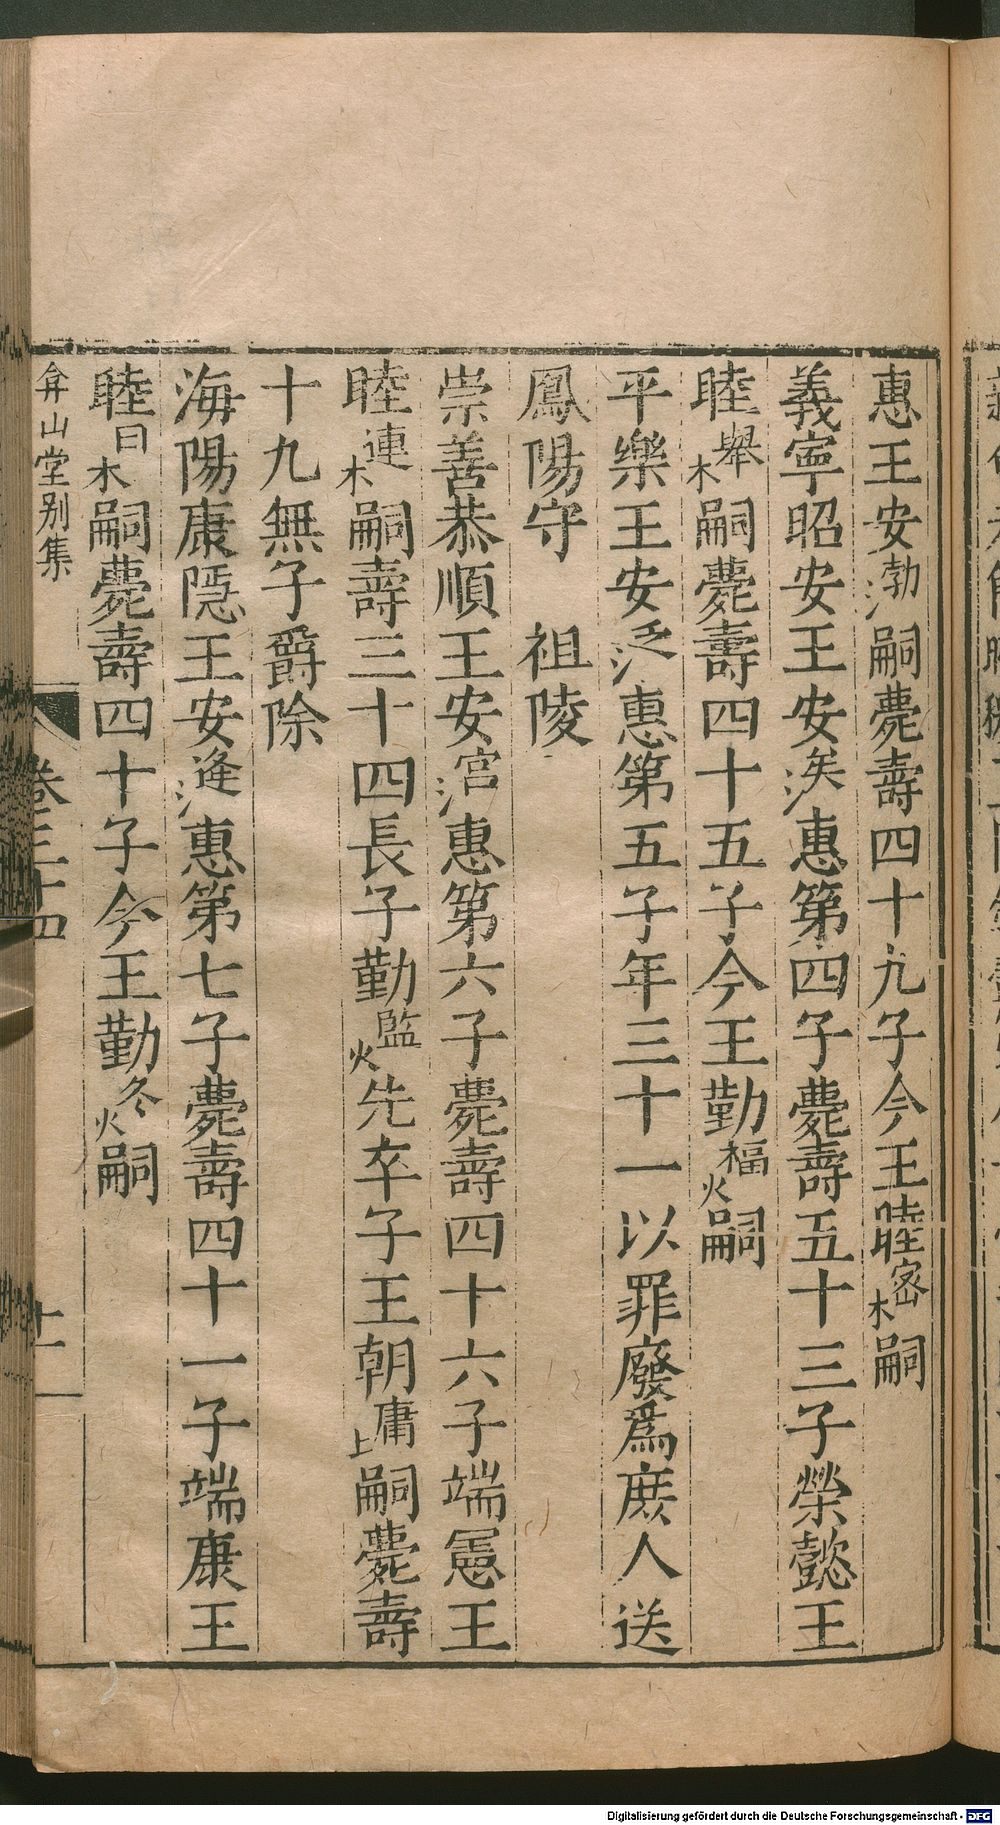 惠王安浡嗣薨壽四十九子今王睦樒嗣
義寧昭安王安涘惠第四子薨壽五十三子榮懿王
睦欅嗣薨壽四十五子今王勤嗣
平樂王安泛惠第五子年三十一以罪廢爲庶人送
鳳陽守 祖陵
崇善恭順王安涫惠第六子薨壽四十六子端憲王
睦槤嗣壽三十四長子勤爁先卒子王朝墉嗣薨壽
十九無子爵除
海陽康隱王安漨惠第七子薨壽四十一子端康王
睦㭆嗣薨壽四十子今王勤炵嗣
弇山堂別集 卷三十四 十一
Digitalisierung gefördert durch die Deutsche Forschungsgemeinschaft - DFG